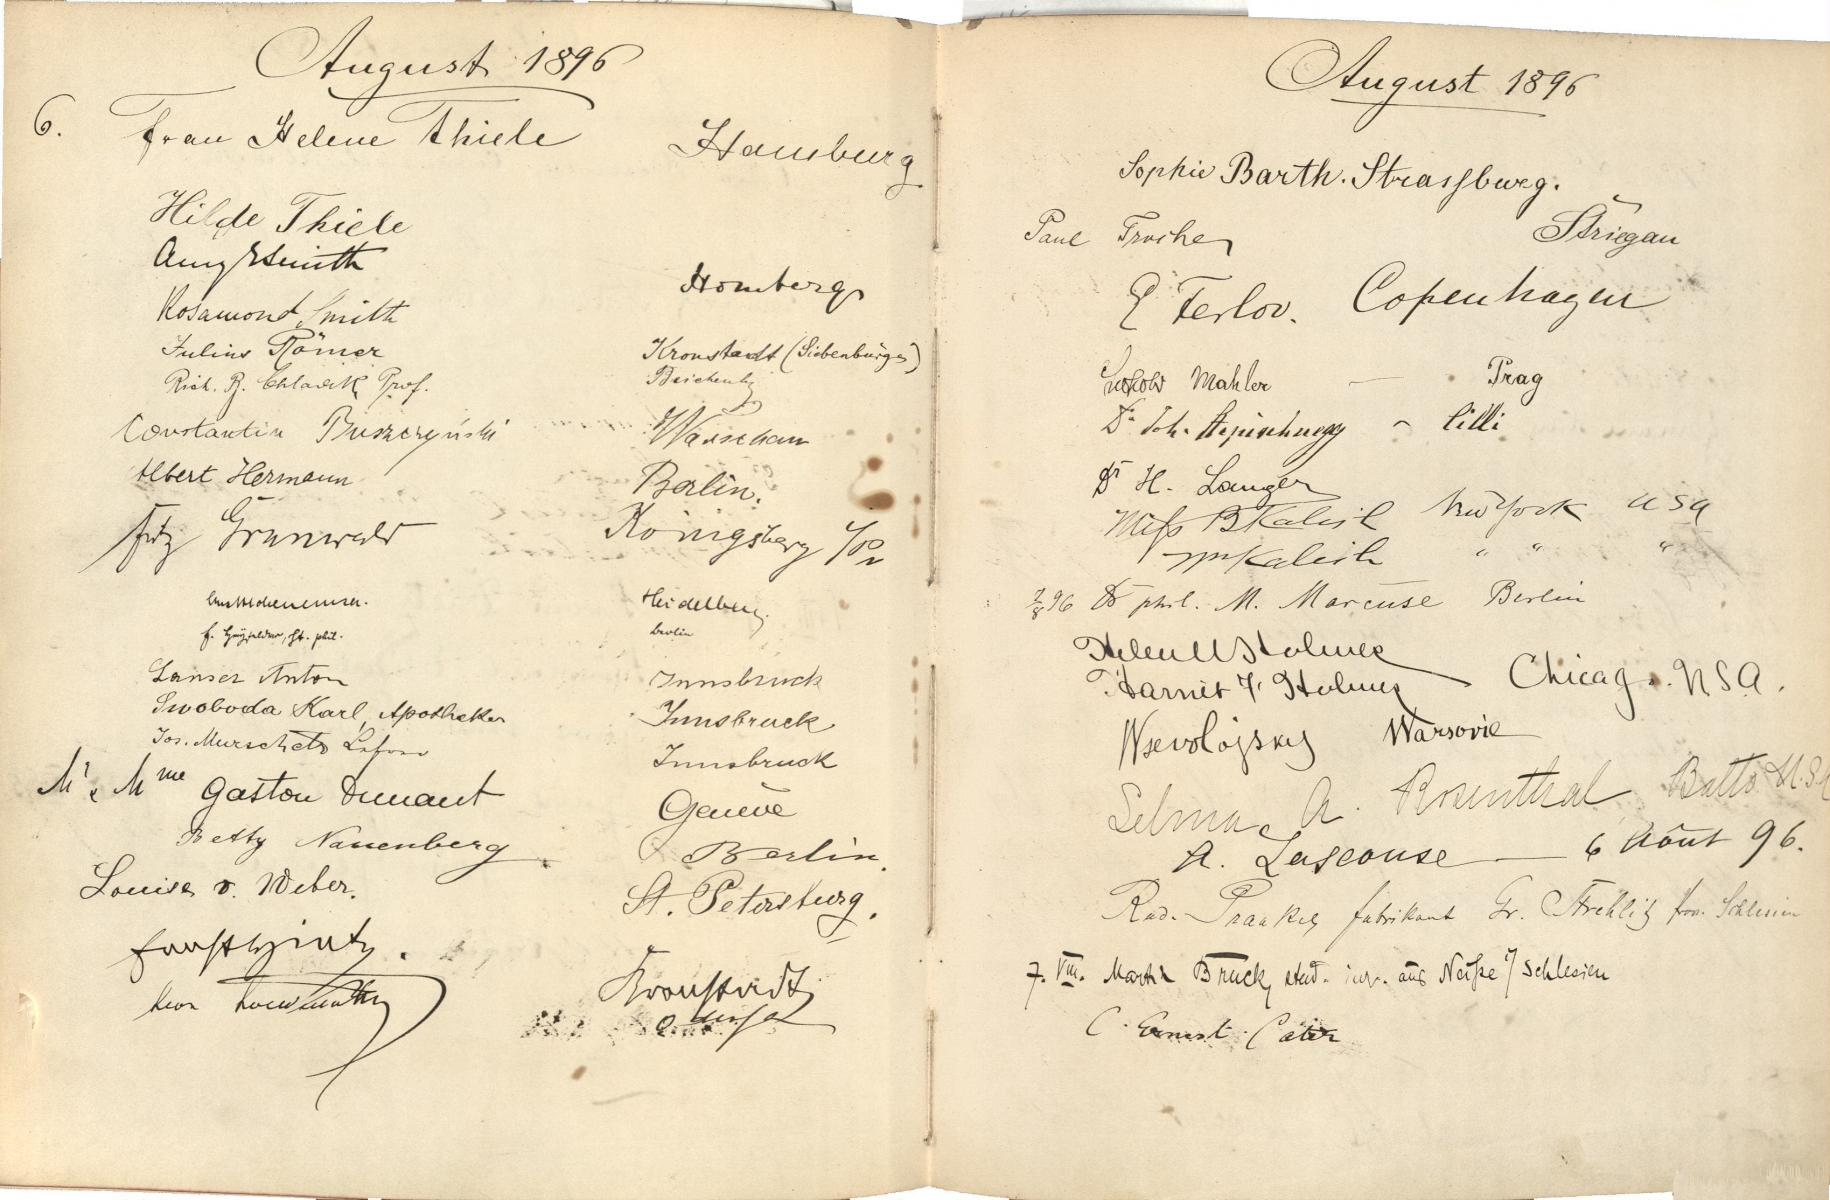 August 1896
6. Frau Helene Thiele Hamburg
Hilde Thiele
Amy Smith Homberg
Rosamond Smith
Julius Römer Kronstadt (Siebenbürgen)
Rich. Prof.
Constantin Buszczyński Warschau
Albert Hermann Berlin.
Fritz Grunwald Königsberg i/Pr
Heidelberg.
phil. Berlin
Lanser Anton Innsbruck
Swoboda Karl, Apotheker Innsbruck
Jos. Innsbruck
Mr & Mme Gaston Dunant Genève
Betty Nauenberg Berlin.
Louise v. Weber. St. Petersburg.
Kronstadt
August 1896
Sophie Barth. Strassburg.
Paul Striegau
E Ferlov. Copenhagen
Mahler — Prag
Dr Joh. - Cilli
Dr H. Langer
Miss B Kalish New York USA
M Kalish " " "
7/8 96 Dr phil. M. Marcuse Berlin
Helen Holmes
Harriet F. Holmes Chicago. U.S.A.
Wsevolojsky Warsovie
Selma A. Rosenthal Balto U.S.A
A. Lascouse — 6 Août 96.
Fabrikant Gr. Strehlitz Prov. Schlesien
7. VIII. Martin Bruck, stud. aus Neiße i/Schlesien
C. Ernest Cater